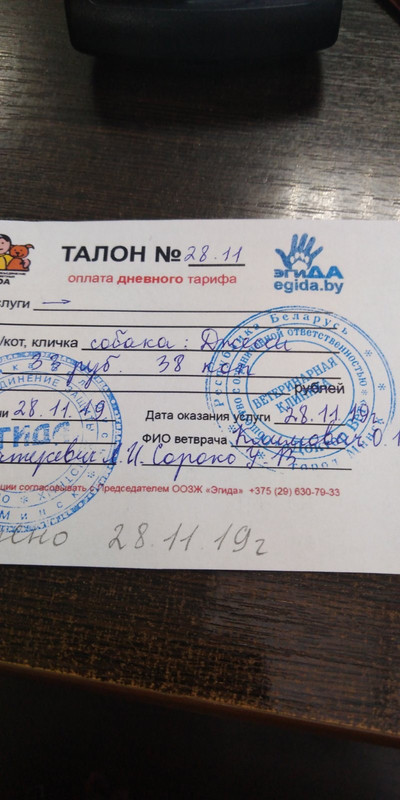 ТАЛОН № 28.11
оплата дневного тарифа
эгиДА
egida.by
слуги
/кот, кличка собака: Джесси
33 руб. 38 коп
рублей
28.11.19 Дата оказания услуги 28.11.19г.
ФИО ветврача Климович О.
Л.И. Сороко У. В
ции согласовывать с Председателем ООЗЖ «Эгида» +375 (29) 630-79-33
ено 28.11.19г
Республика Беларусь
ответственностью
ВЕТЕРИНАРНАЯ
КЛИНИКА